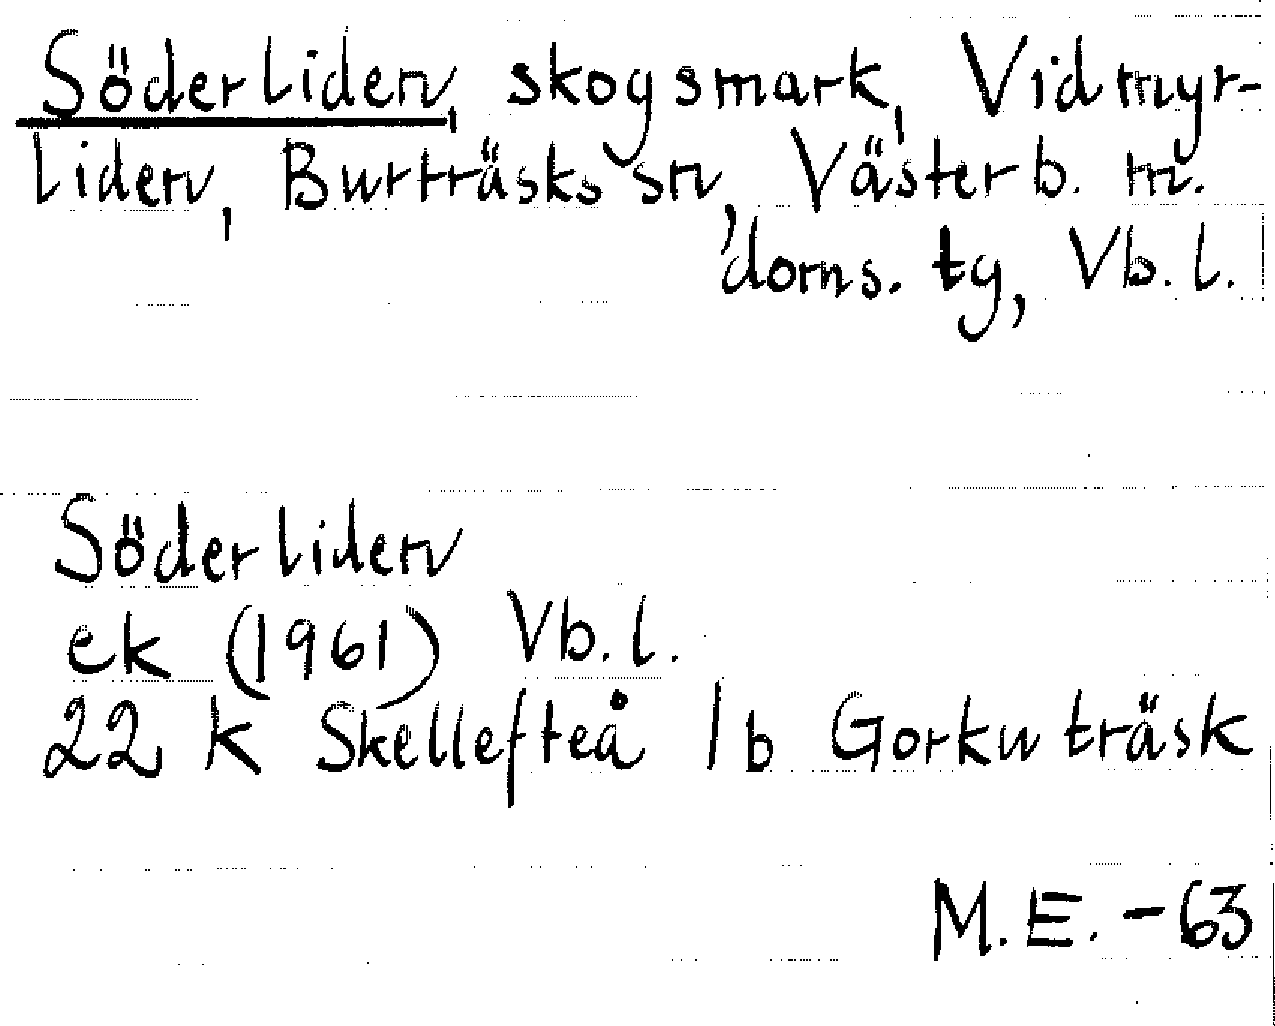 Söderliden, skogsmark, Vidmyr-
liden, Burträsks sn, Västerb. m.
doms. tg, Vb. l.
Söderliden
ek (1961) Vb. l.
22 K Skellefteå 1 b Gorkuträsk
M. E. - 63